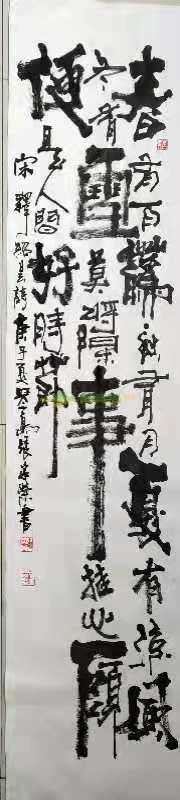 春有百花秋有月夏有凉風
冬有雪莫將閑事挂心頭
便是人間好時節
宋釋紹昙詩庚子夏琴島張榮書